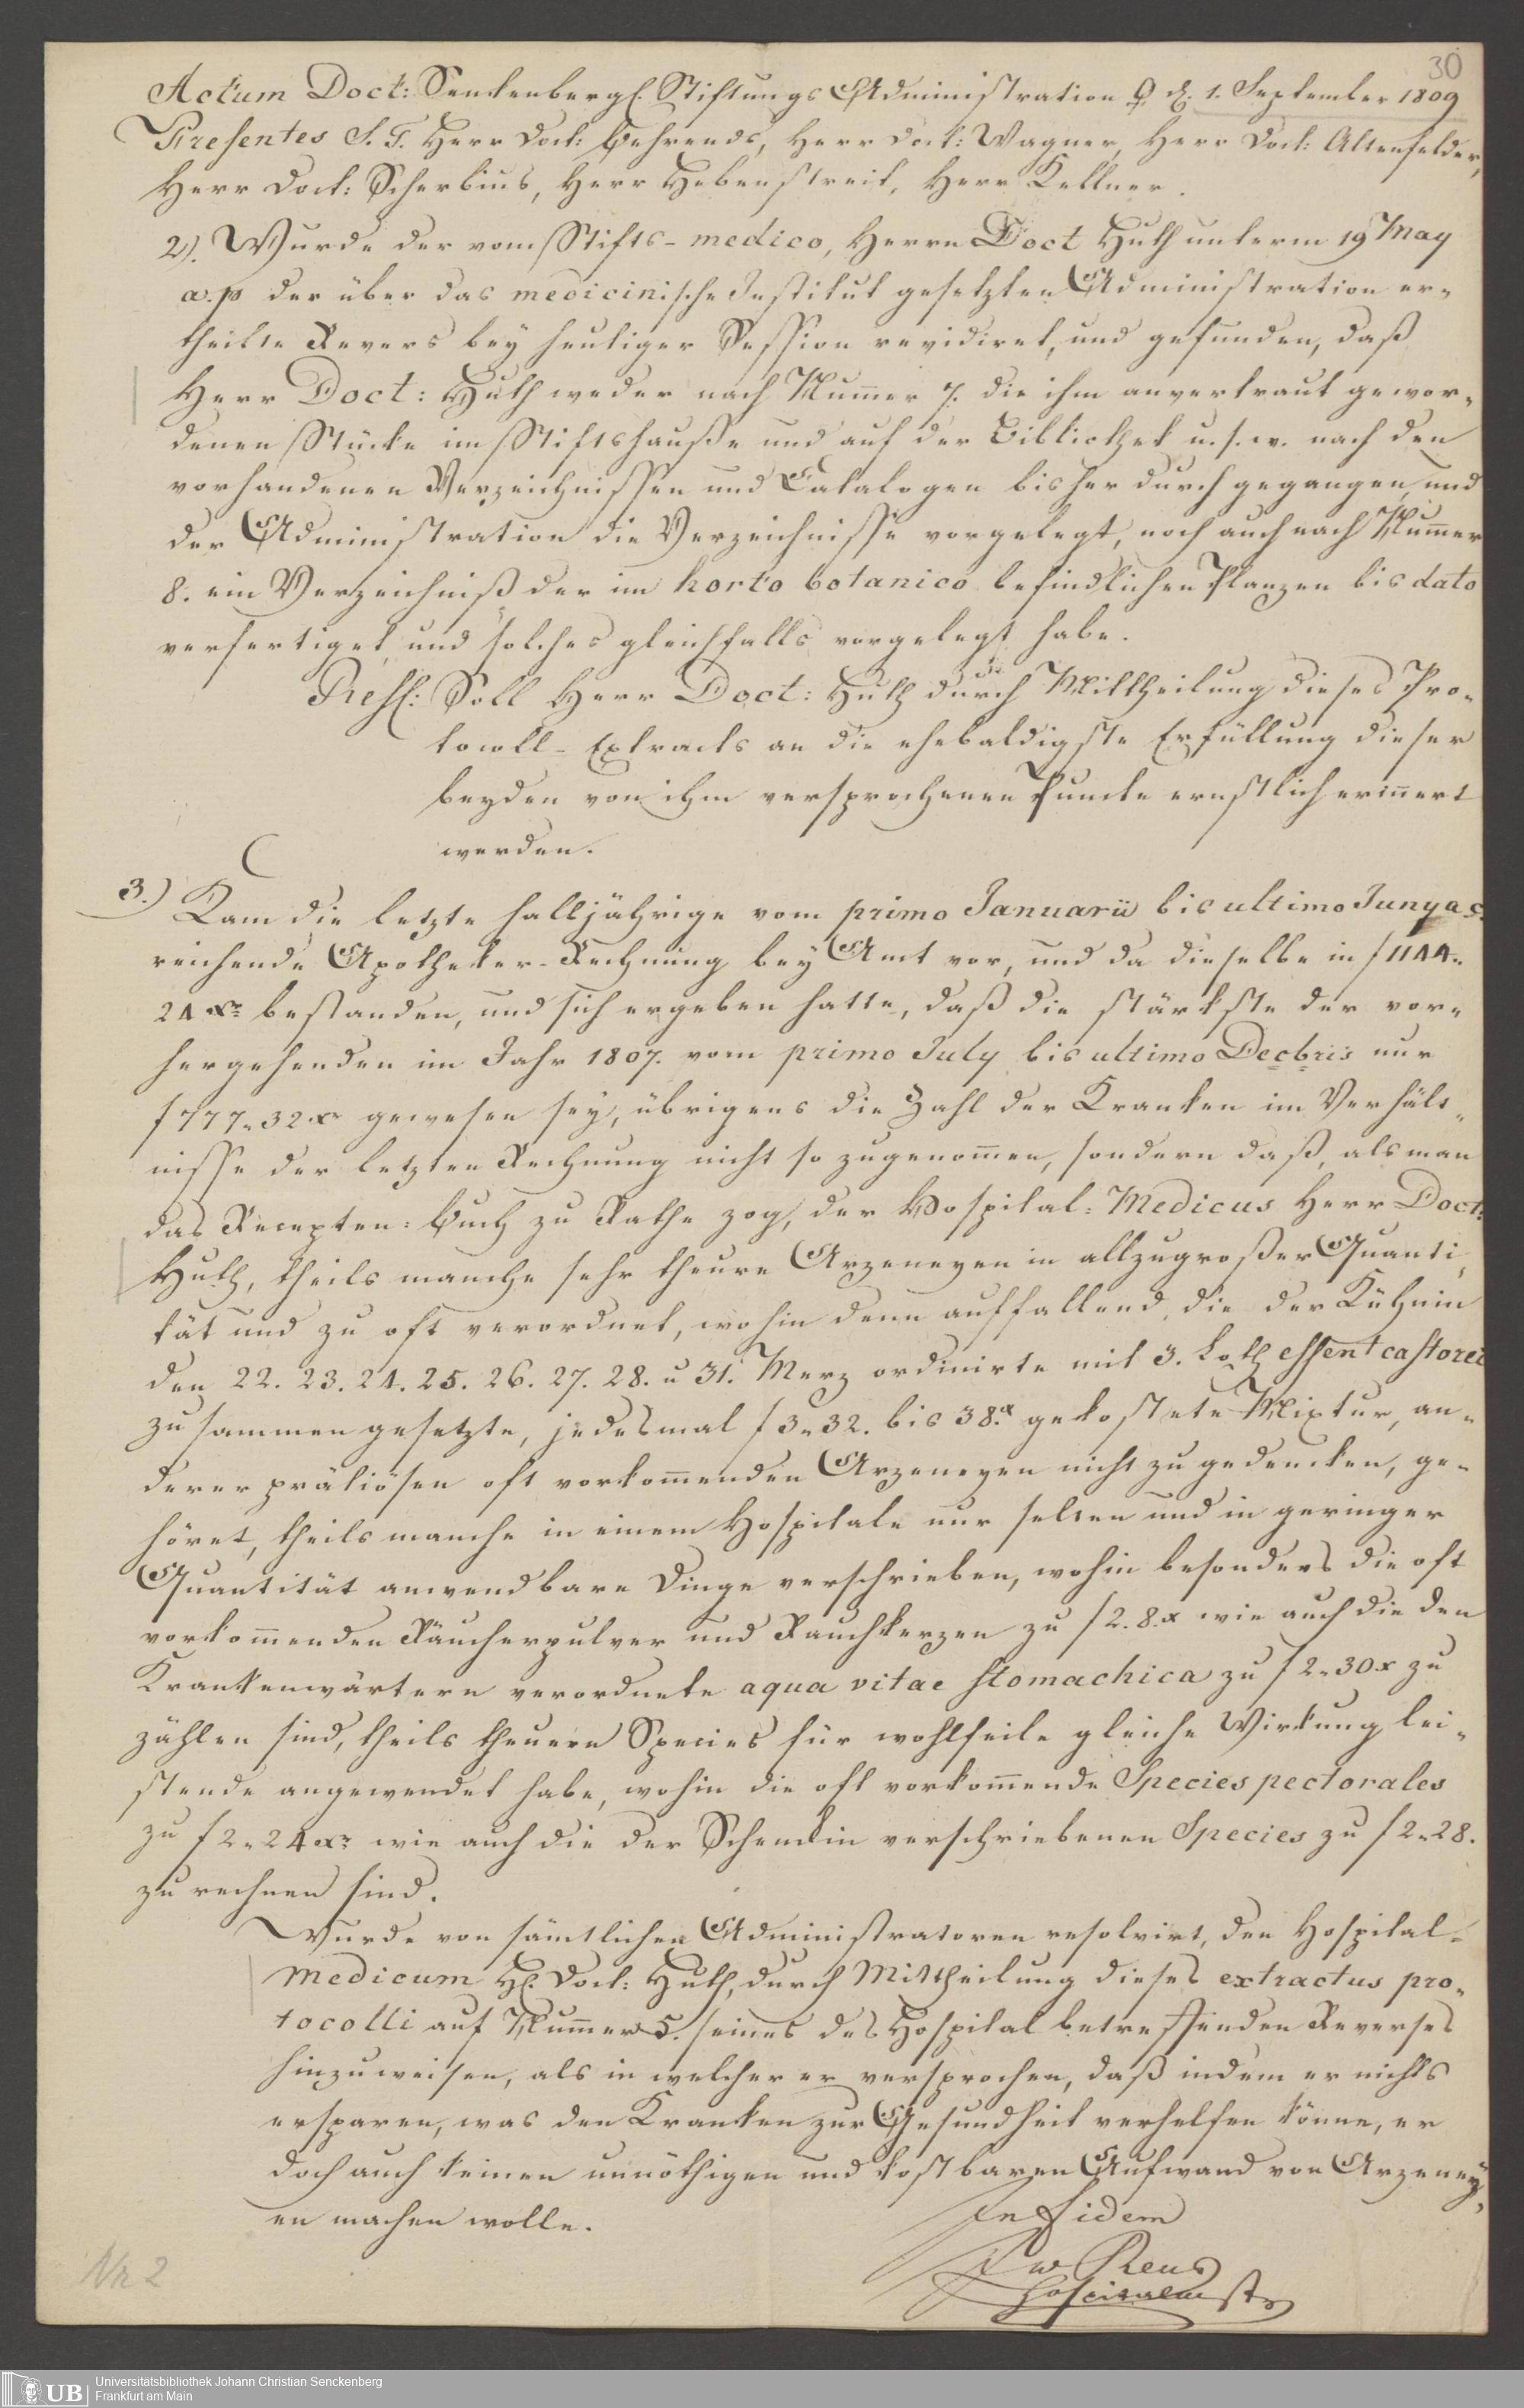 30
Actum Doct: Senckenbergl. Stiftungs Administration ♀ d. 1. September 1809
Presentes S. T. Herr Doct: Behrends, Herr Doct: Wagner, Herr Doct: Altenfelder,
Herr Doct: Scherbius, Herr Hebenstreit, Herr Kellner.
2). Wurde der vom Stifts-medico, Herrn Doct Huth unterm 19 May
a. p der über das medicinische Institut gesetzten Administration er-
theilte Revers bey heutiger Session revidiret, und gefunden, daß
Herr Doct: Huth weder nach Num̄er 7. die ihm anvertraut gewor-
denen Stücke im Stiftshauße und auf der Bibliothek u. s. w. nach den
vorhandenen Verzeichnissen und Catalogen bisher durchgegangen, und
der Administration die Verzeichnisse vorgelegt, noch auch nach Num̄er
8. ein Verzeichniß der im horto botanico befindlichen Planzen bis dato
verfertiget, und solches gleichfalls vorgelegt habe.
Resl: Soll Herr Doct: Huth durch Mittheilung dieses Pro-
tocoll-Extracts an die ehebaldigste Erfüllung dieser
beyden von ihm versprochenen Puncte ernstlich erin̄ert
werden.
3.) Kam die letzte halbjährige vom primo Januarii bis ultimo Juny a. c.
reichende Apotheker-Rechnung bey Amt vor, und da dieselbe in f 1144„
24 xr bestanden, und sich ergeben hatte, daß die stärkste der vor-
hergehenden im Jahr 1807. vom primo July bis ultimo Decbris nur
f 777„32 xr gewesen sey, übrigens die Zahl der Kranken im Verhält-
nisse der letzten Rechnung nicht so zugenom̄en, sondern daß, als man
das Recepten-Buch zu Rathe zog, der Hospital-Medicus Herr Doct:
Huth, theils manche sehr theure Arzeneyen in allzugroßer Quanti-
tät und zu oft verordnet, wohin denn auffallend, die der Kühnin
den 22. 23. 24. 25. 26. 27. 28. u 31. Merz ordinirte mit 3. Loth essent castorei
zusammen gesetzte, jedesmal f 3„32. bis 38.x gekostete Mixtur, an-
derer prätiösen oft vorkom̄enden Arzeneyen nicht zu gedencken, ge-
höret, theils manche in einem Hospitale nur selten und in geringer
Quantität anwendbare Dinge verschrieben, wohin besonders die oft
vorkom̄enden Räucherpulver und Rauchkerzen zu f 2. 8.x wie auch die den
Krankenwärtern verordnete aqua vitae stomachica zu f 2„30x zu
zählen sind, theils theuere Species für wohlfeile gleiche Wirkung lei-
stende angewendet habe, wohin die oft vorkom̄ende Species pectorales
zu f 2„24 xr wie auch die der Schendin verschriebenen Species zu f 2„28.
zu rechnen sind.
Wurde von sämtlichen Administratoren resolvirt, den Hospital-
Medicum H. Doct: Huth, durch Mittheilung dieses extractus pro-
tocolli auf Num̄er 5. seines das Hospital betreffenden Reverses
hinzuweisen, als in welcher er versprochen, daß indem er nichts
ersparen, was den Kranken zur Gesundheit verhelfen könne, er
doch auch keinen unnöthigen und kostbaren Aufwand von Arzeney-
en machen wolle.
In Fidem
Reus
Nr 2
UB
Universitätsbibliothek Johann Christian Senckenberg
Frankfurt am Main